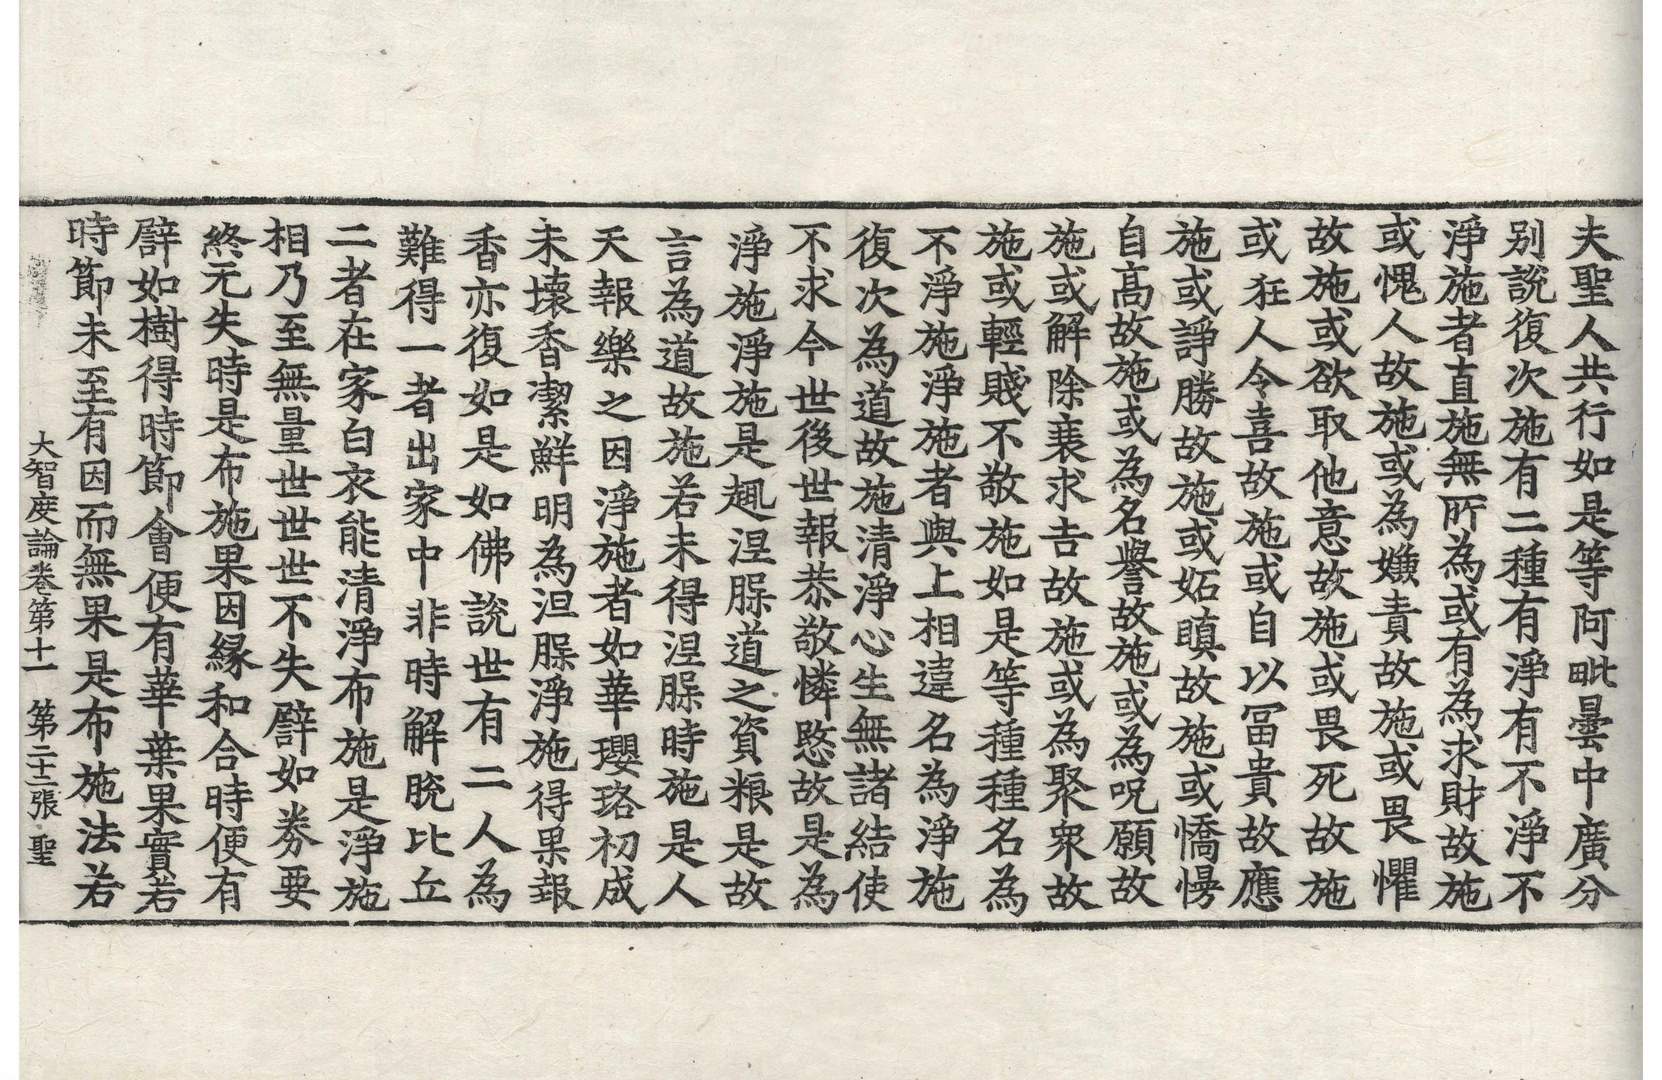 夫聖人共行如是等阿毗曇中廣分
別說復次施有二種有淨有不淨不
淨施者直施無所為或有為求財故施
或愧人故施或為嫌責故施或畏懼
故施或欲取他意故施或畏死故施
或狂人令喜故施或自以冨貴故應
施或諍勝故施或妬瞋故施或憍慢
自高故施或為名譽故施或為呪願故
施或解除衰求吉故施或為聚衆故
施或輕賤不敬施如是等種種名為
不淨施淨施者與上相違名為淨施
復次為道故施清淨心生無諸結使
不求今世後世報恭敬憐愍故是為
淨施淨施是趣涅槃道之資粮是故
言為道故施若未得涅槃時施是人
天報樂之因淨施者如華瓔珞初成
未壞香潔鮮明為涅槃淨施得果報
香亦復如是如佛說世有二人為
難得一者出家中非時解脫比丘
二者在家白衣能清淨布施是淨施
相乃至無量世世世不失譬如券要
終无失時是布施果因緣和合時便有
譬如樹得時節會便有華葉果實若
時節未至有因而無果是布施法若
大智度論卷第十一　第二十二張　聖